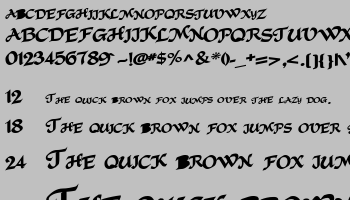 ABCDEFGHIJKLMNOPQRSTUVWXYZ
ABCDEFGHIJKLMNOPQRSTUVWX
0123456789 ~!@#$%^&*()-_+=>,<.[]{}
12 THE QUICK BROWN FOX JUMPS OVER THE LAZY DOG.
18 THE QUICK BROWN FOX JUMPS OVER THE
24 THE QUICK BROWN FOX JUM
THE QUICK BROWN